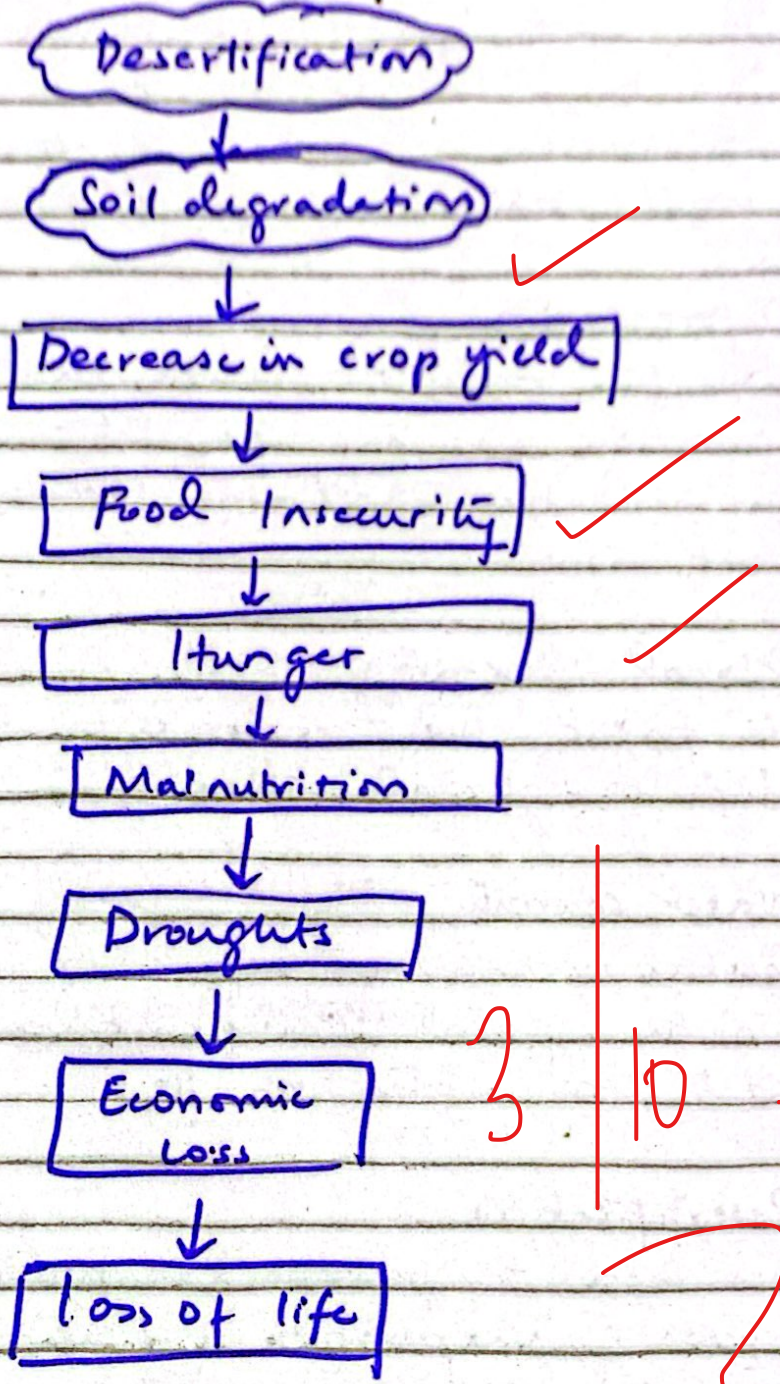 Desertification
Soil degradation
Decrease in crop yield
Food Insecurity
Hunger
Malnutrition
Droughts
Economic
Loss
3 | 10
Loss of life